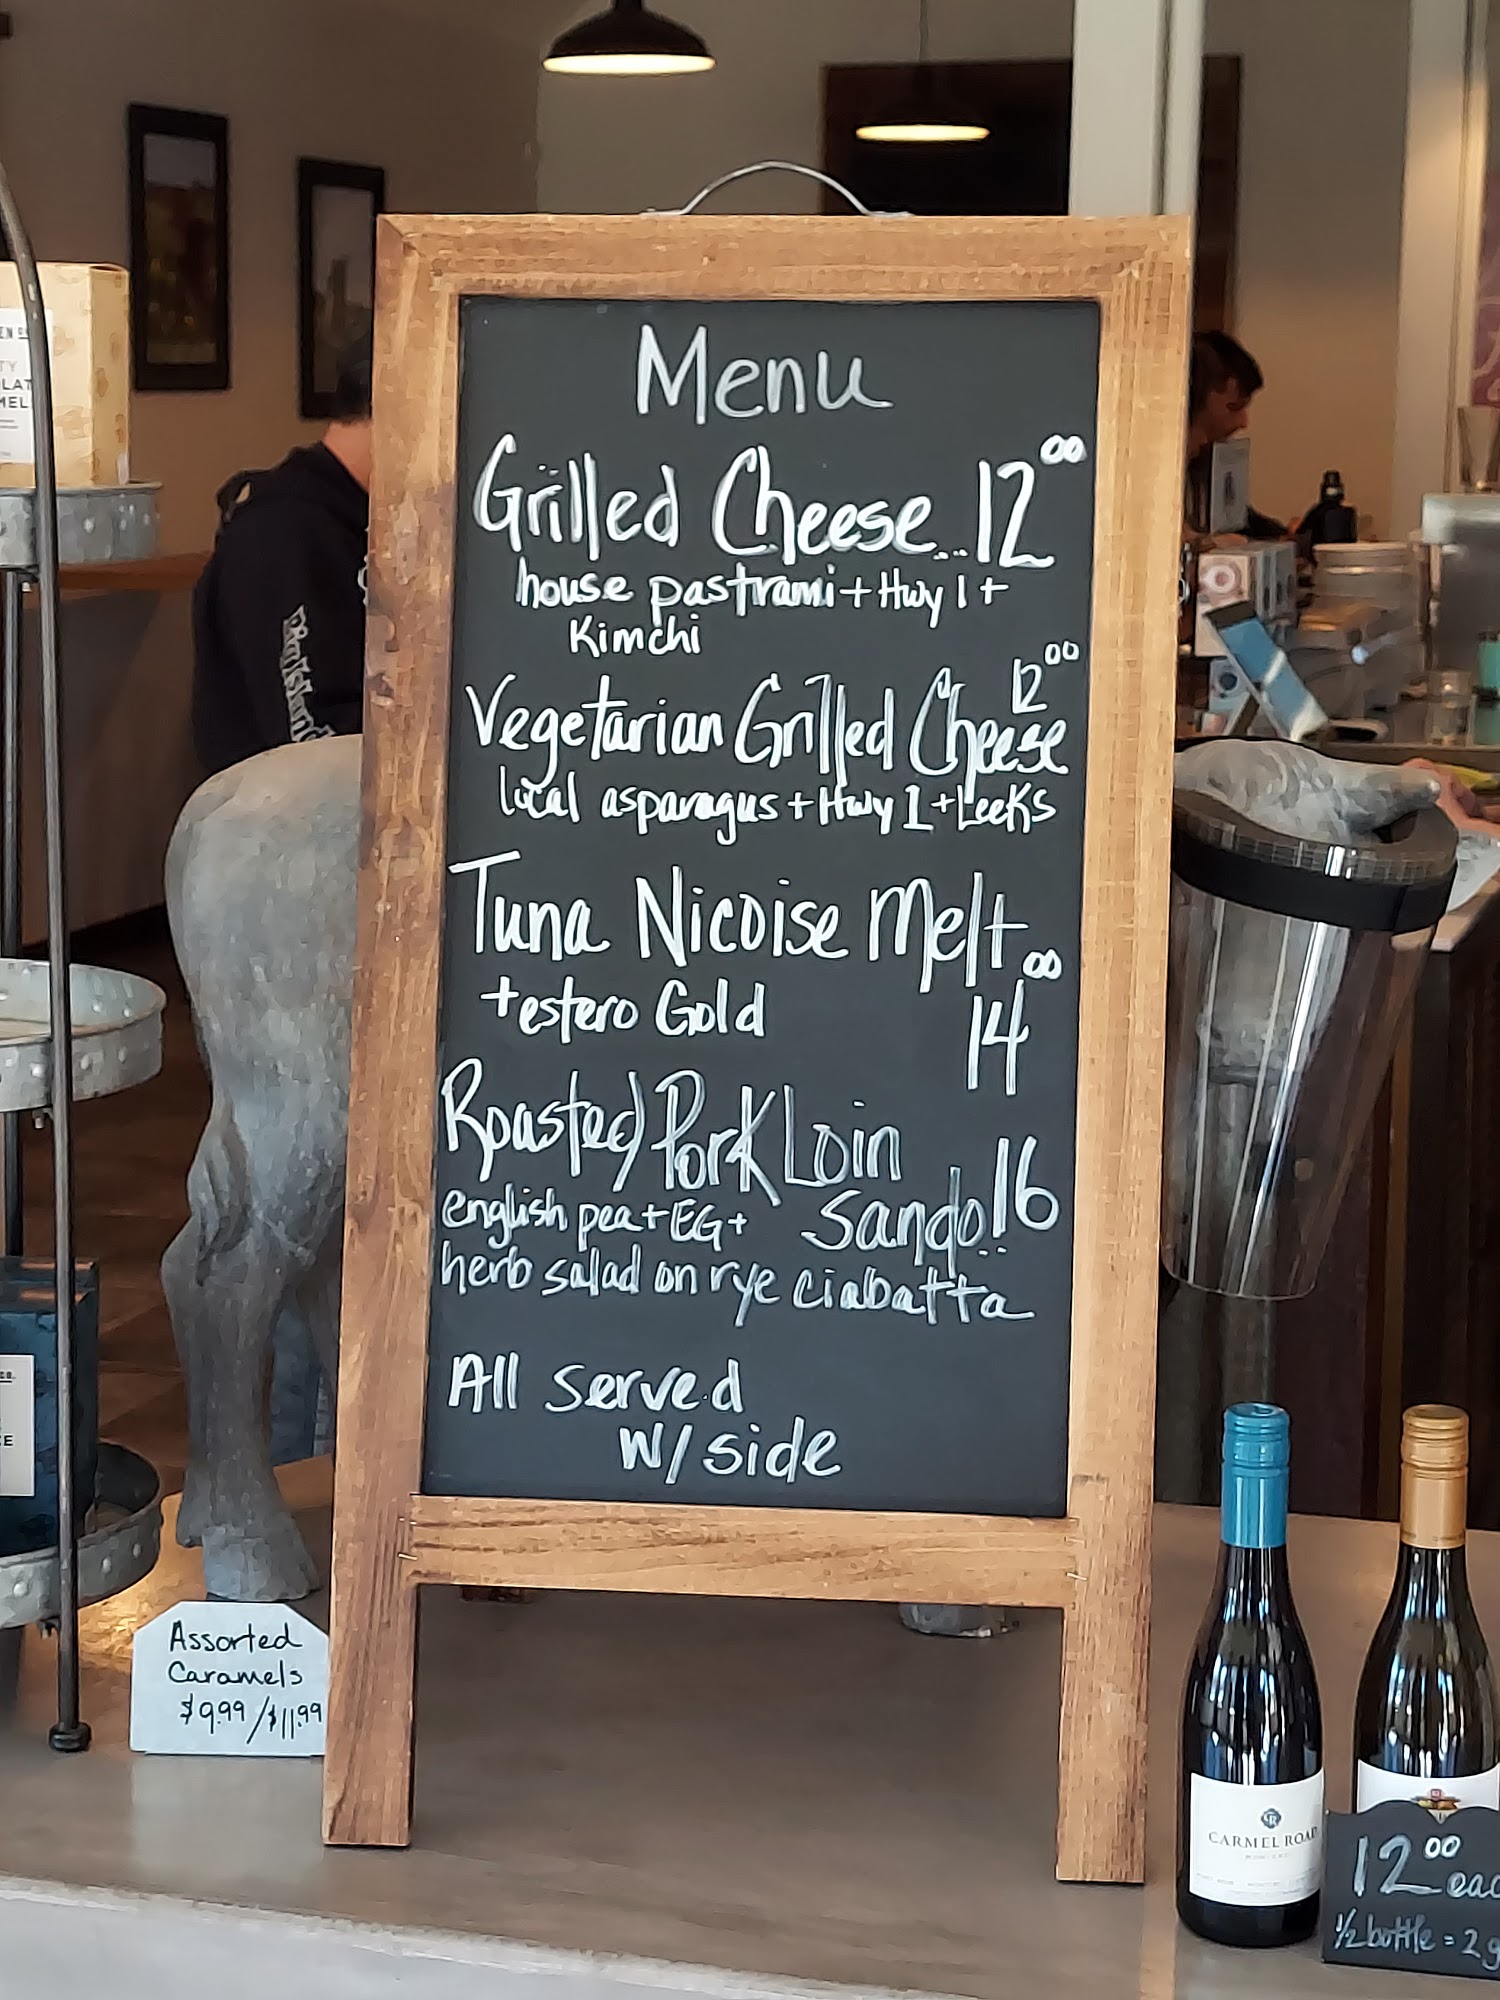 Menu
Grilled Cheese...12 00
house pastrami + Hwy 1 +
Kimchi
12 00
Vegetarian Grilled Cheese
local asparagus + Hwy 1 + Leeks
Tuna Nicoise Melt
+ estero Gold
14 00
Roasted Pork Loin
Sando..16
english pea + EG +
herb salad on rye ciabatta
All served
w/ side
Assorted
Caramels
$9.99/$11.99
CARMEL ROAD
12 00 eac
1/2 bottle = 2 g